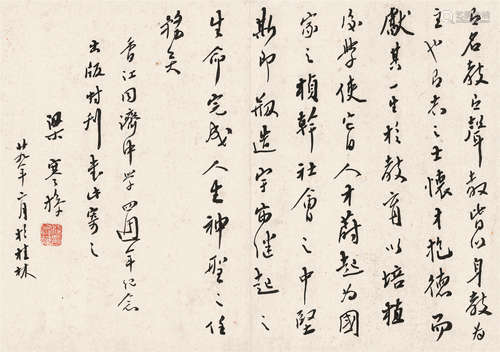 言名教言聲教皆以身教為
主也有志之士懷才抱德而
獻其一生於教育以培植
後學使盲人才蔚起為國
家之楨幹社會之中堅
斯即創造宇宙繼起之
生命完成人生神聖之任
務矣
香江同濟中學四週年紀念
出版特刊書此寄之
梁寒操
廿九年二月於桂林